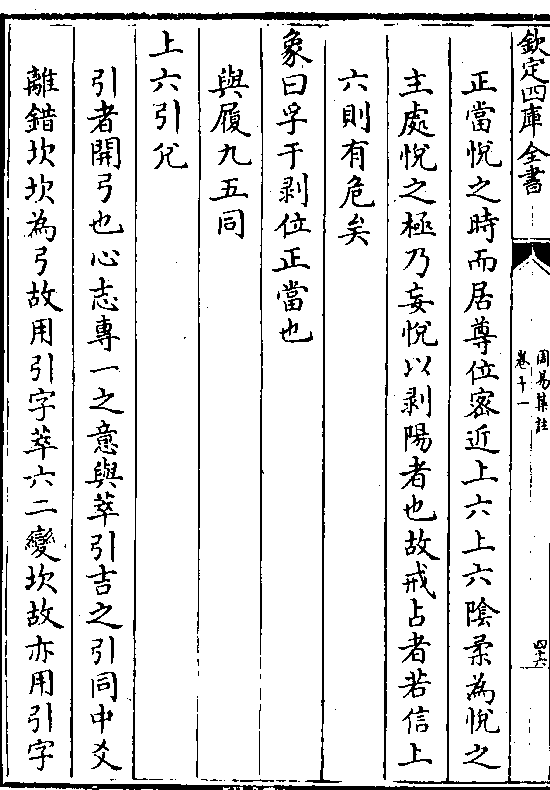 欽定四庫全書
周易集註
卷十一
四十六
正當悅之時而居尊位密近上六上六陰柔為悅之
主處悅之極乃妄悅以剥陽者也故戒占者若信上
六則有危矣
象曰孚于剥位正當也
與履九五同
上六引兊
引者開弓也心志專一之意與萃引吉之引同中爻
離錯坎坎為弓故用引字萃六二變坎故亦用引字